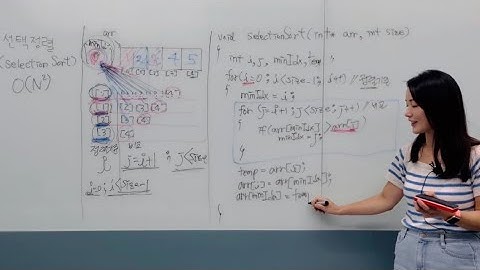 선택정렬
(selection Sort)
O(N²)
arr
minIdx
1 2 3 4 5
[0] [1] [2] [3] [4]
[0] [1] [2] [3] [4]
[1] [2] [3] [4]
[2] [3] [4]
[3] [4]
정렬기준 비교
i j=i+1 ; j<size
i=0; i<size-1
void selectionSort(int* arr, int size)
{
int i, j, minIdx, temp;
for(i=0; i<size-1; i++) // 정렬기준
{
minIdx = i;
for(j=i+1; j<size; j++) // 비교
{
if(arr[minIdx] > arr[j])
minIdx = j;
}
temp = arr[i];
arr[i] = arr[minIdx];
arr[minIdx] = tem
}